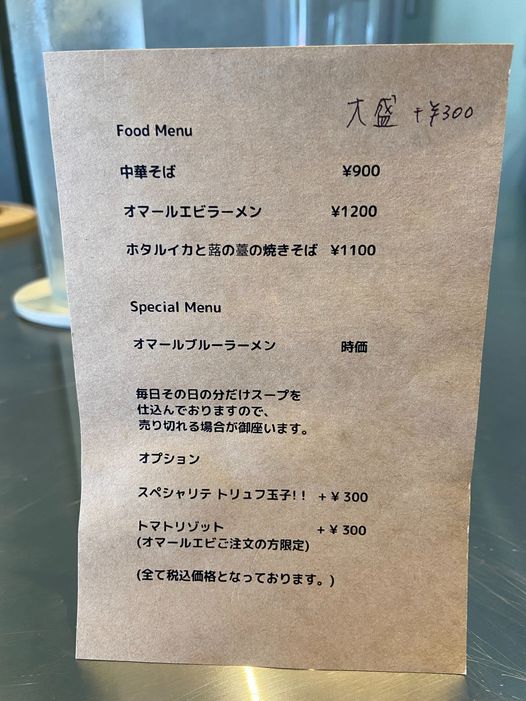 大盛 +¥300
Food Menu
中華そば ¥900
オマールエビラーメン ¥1200
ホタルイカと蕗の薹の焼きそば ¥1100
Special Menu
オマールブルーラーメン 時価
毎日その日の分だけスープを
仕込んでおりますので、
売り切れる場合が御座います。
オプション
スペシャリテ トリュフ玉子!! +¥300
トマトリゾット +¥300
(オマールエビご注文の方限定)
(全て税込価格となっております。)